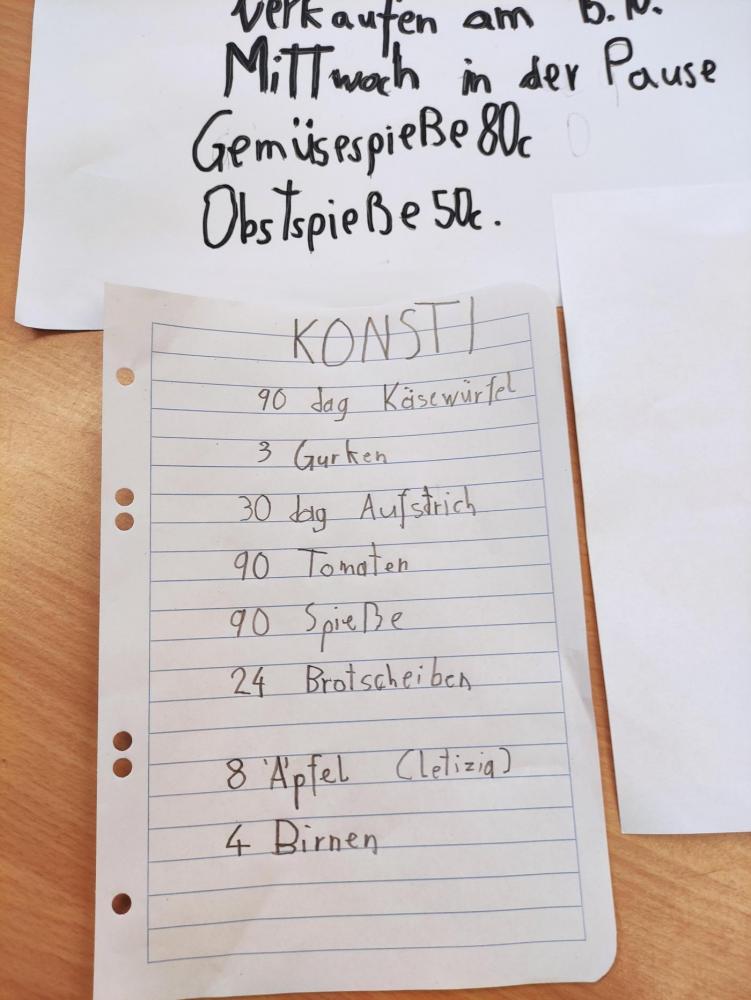 Verkaufen am
Mittwoch in der Pause
Gemüsespieße 80c
Obstspieße 50c.
KONSTI
90 dag Käsewürfel
3 Gurken
30 dag Aufstrich
90 Tomaten
90 Spieße
24 Brotscheiben
8 Äpfel (letizia)
4 Birnen